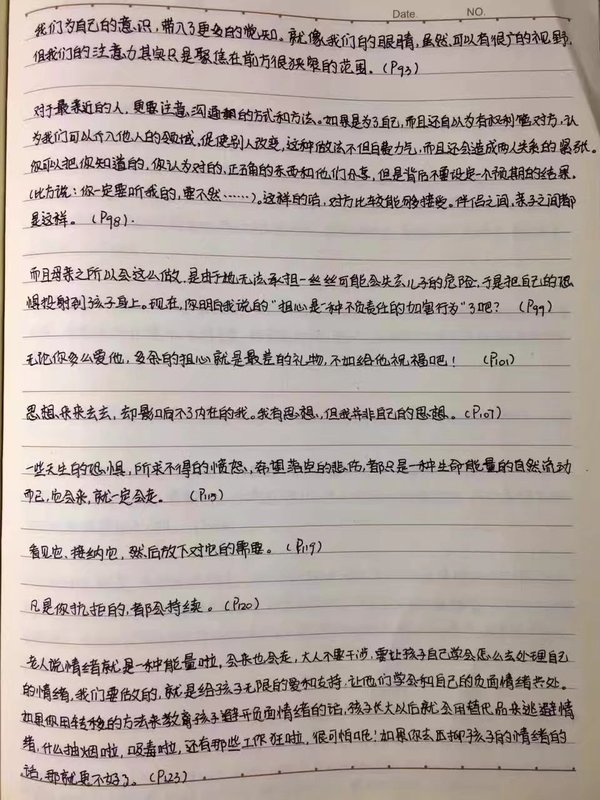 Date. NO.
我们为自己的意识,带入了更多的觉知。就像我们的眼睛,虽然可以有很广的视野,
但我们的注意力其实只是聚焦在前方很狭窄的范围。(P93)
对于最亲近的人,更要注意沟通的方式和方法。如果是为了自己,而且还自以为有权利管对方,认
为我们可以介入他人的领域,促使别人改变,这种做法不但自毁力气,而且还会造成两人关系的紧张。
你可以把你知道的,你认为对的,正确的东西和他们分享,但是背后不要设定一个预期的结果。
(比方说:你一定要听我的,要不然……)。这样的话,对方比较能够接受。伴侣之间,亲子之间都
是这样。(P98).
而且母亲之所以会这么做,是由于她无法承担一丝丝可能会失去儿子的危险,于是把自己的恐
惧投射到孩子身上。现在,你明白我说的"担心是一种不负责任的加害行为"了吧?(P99)
无论你多么爱他,多余的担心就是最差的礼物,不如给他祝福吧!(P101)
思想来来去去,却影响不了内在的我。我有思想,但我并非自己的思想。(P107)
一些天生的恐惧,所求不得的愤怒,希望落空的悲伤,都只是一种生命能量的自然流动
而已,它会来,就一定会走。(P115)
看见它,接纳它,然后放下对它的需要。(P119)
凡是你抗拒的,都会持续。(P120)
老人说情绪就是一种能量啦,会来也会走,大人不要干涉,要让孩子自己学会怎么去处理自己
的情绪,我们要做的,就是给孩子无限的爱和支持,让他们学会和自己的负面情绪共处。
如果你用转移的方法来教育孩子避开负面情绪的话,孩子长大以后就会用替代品来逃避情
绪,什么抽烟啦,吸毒啦,还有那些工作狂啦,很可怕呢!如果你去压抑孩子的情绪的
话,那就更不好了。(P123)